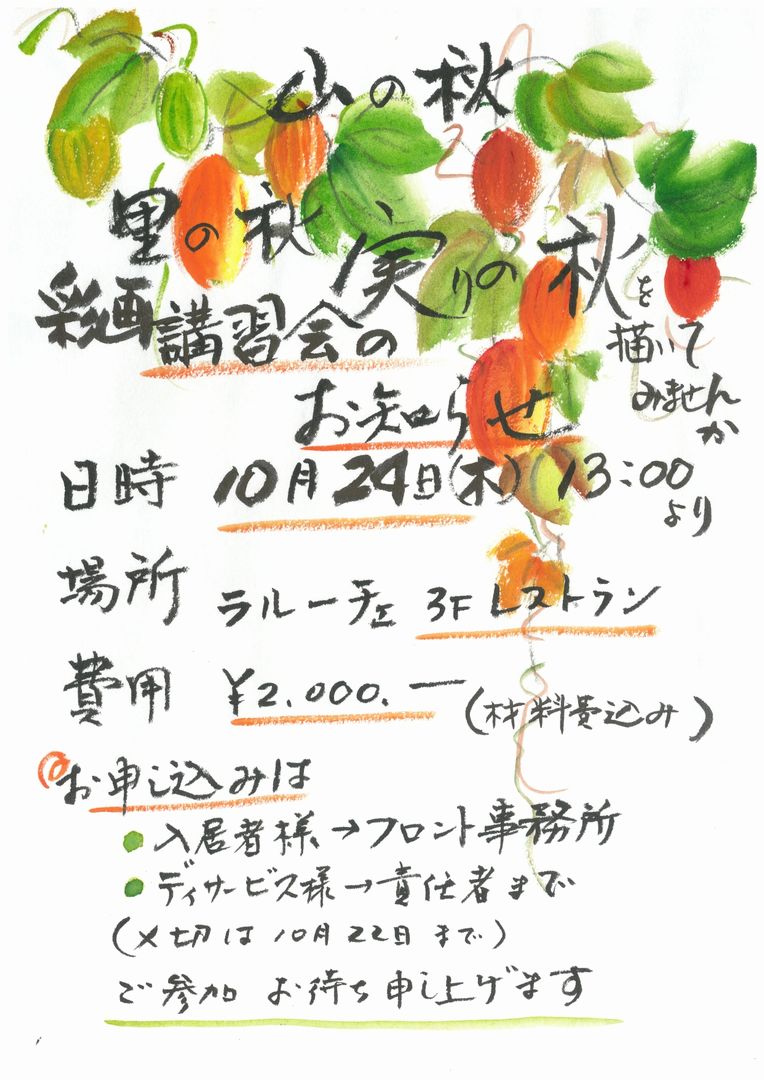 山の秋
里の秋 実りの秋を
描いて
みませんか
彩画講習会の
お知らせ
日時 10月24日(木) 13:00
より
場所 ラルーチェ 3F レストラン
費用 ¥2.000.ー(材料費込み)
お申込みは
● 入居者様→フロント事務所
● デイサービス様→責任者まで
(〆切は10月22日まで)
ご参加 お待ち申し上げます